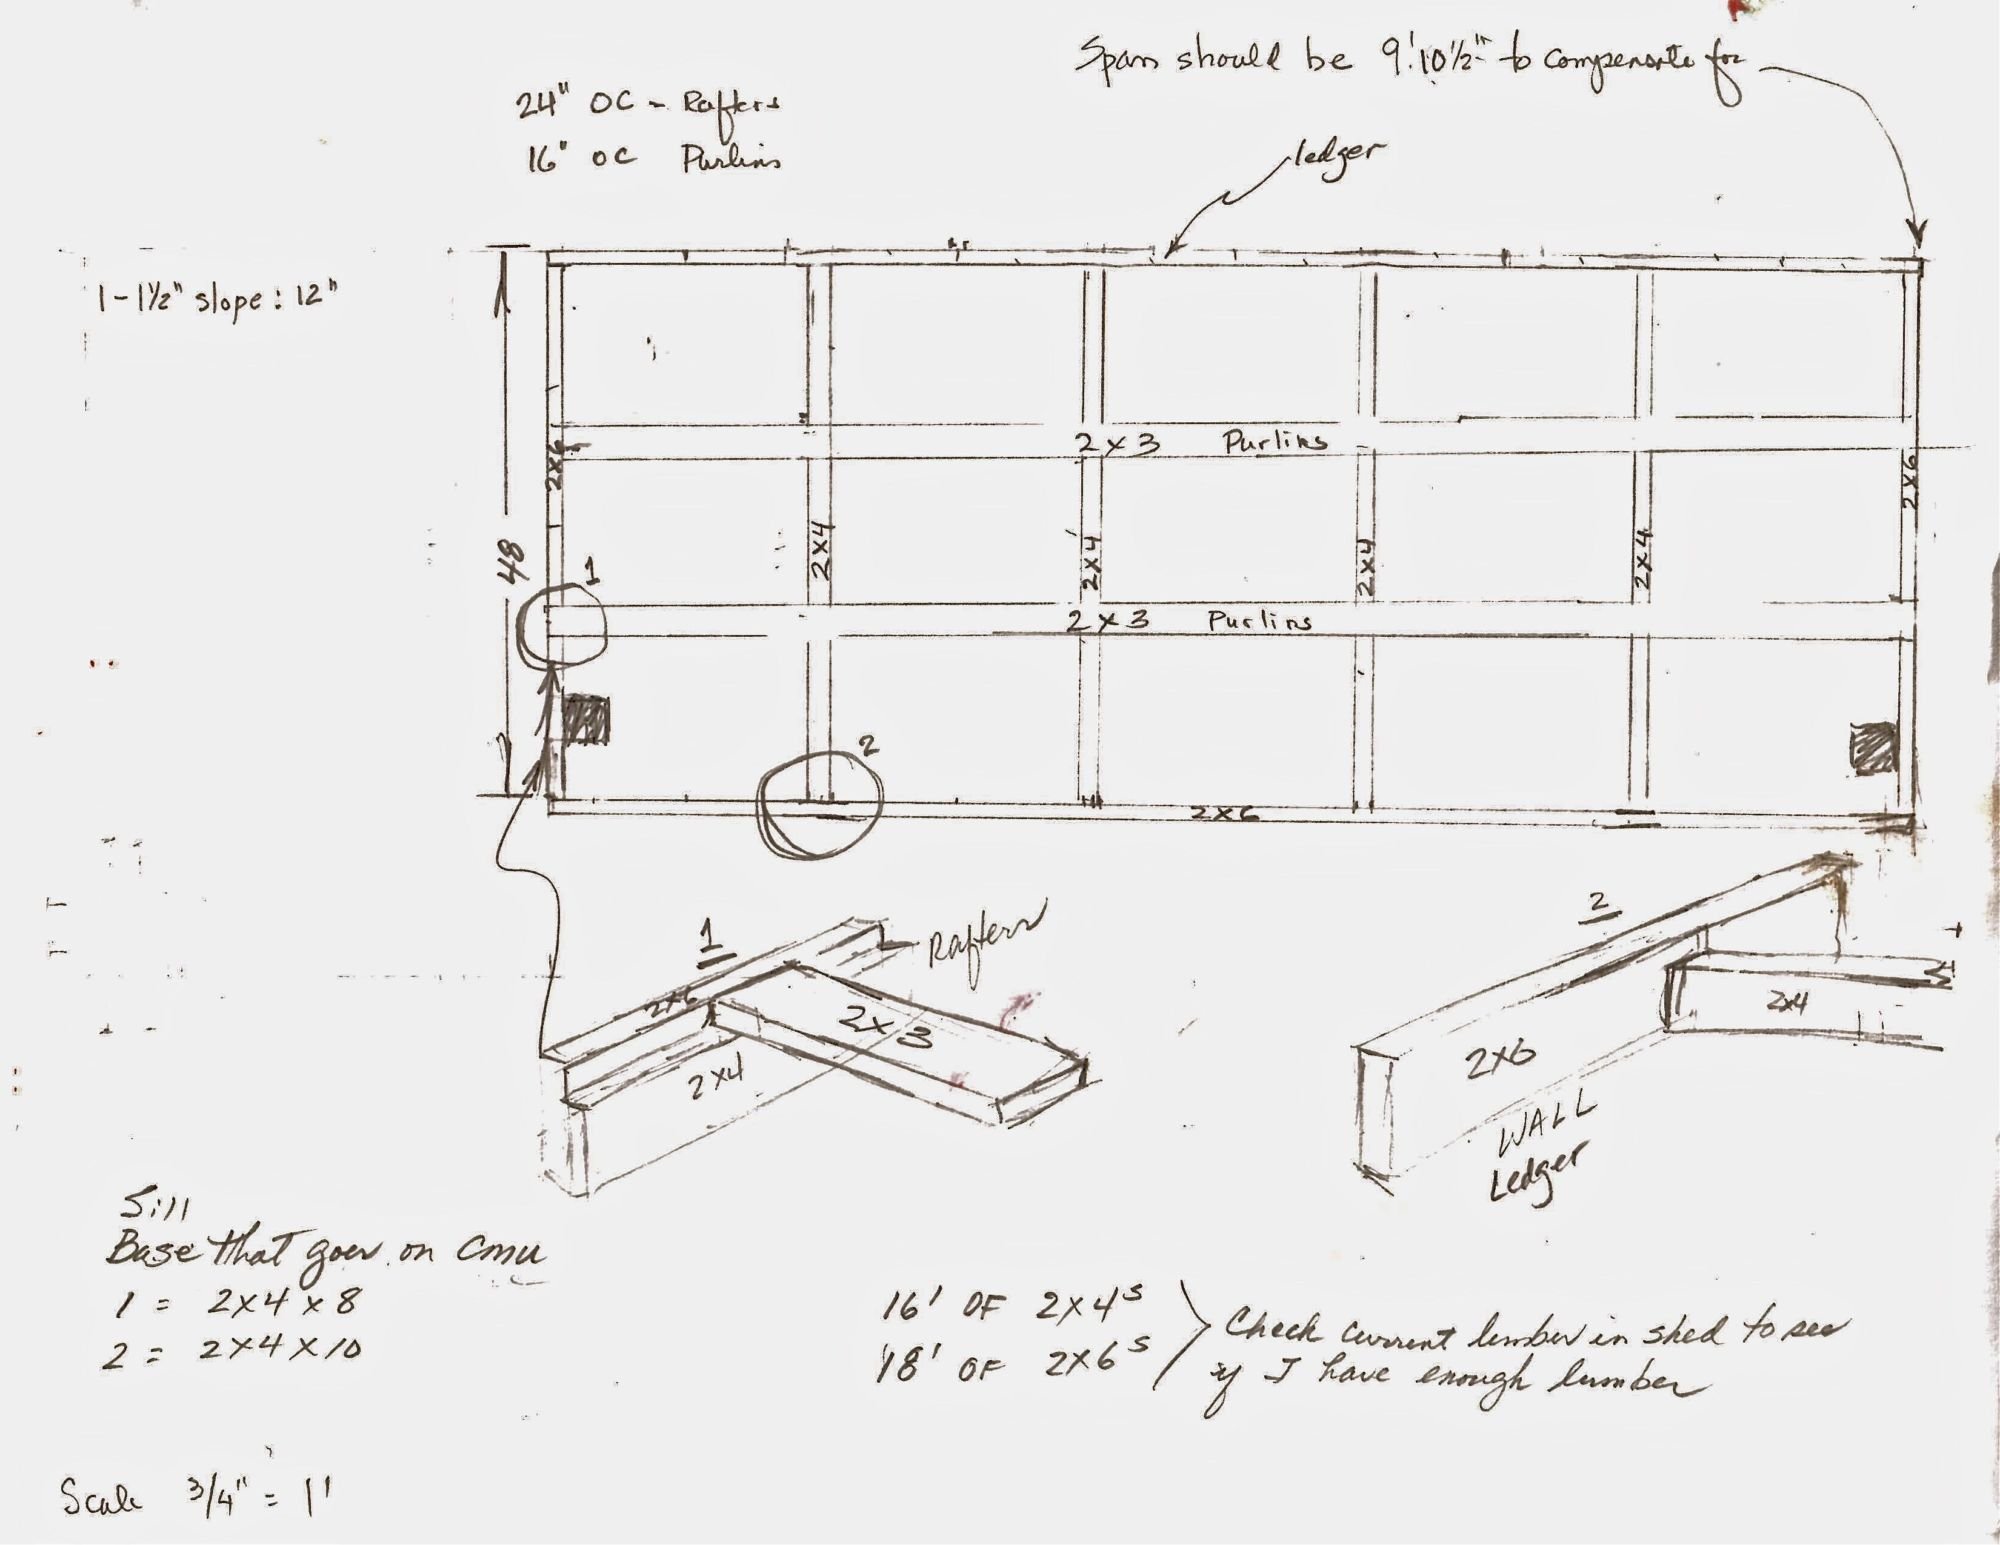 Span should be 9'10½" to compensate for
24" OC - Rafters
16" OC Purlins
ledger
1-1½" slope : 12"
2x6
2x3 Purlins
2x6
48
2x4
2x4
2x4
2x4
1
2x3 Purlins
2
2x6
1
Rafters
2x6
2x3
2x4
2
2x4
2x6
WALL
Ledger
Sill
Base that goes on CMU
1 = 2x4x8
2 = 2x4x10
16' OF 2x4s
18' OF 2x6s
Check current lumber in shed to see
if I have enough lumber
Scale 3/4" = 1'